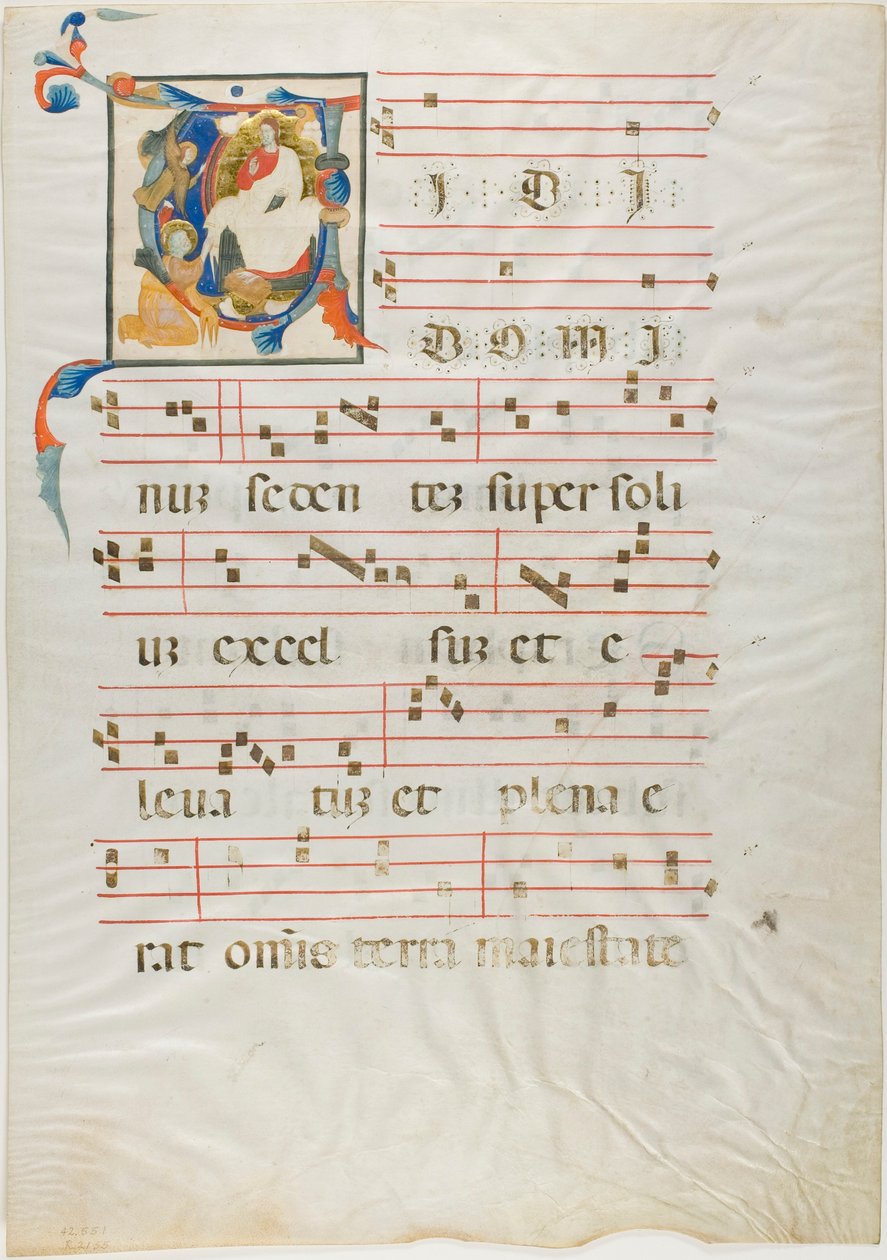 VIDI
DOMI
nuz seden tez super soli
uz excel suz et e
leua tuz et plena e
rat om̄is terra maiestate
42.551
R2155